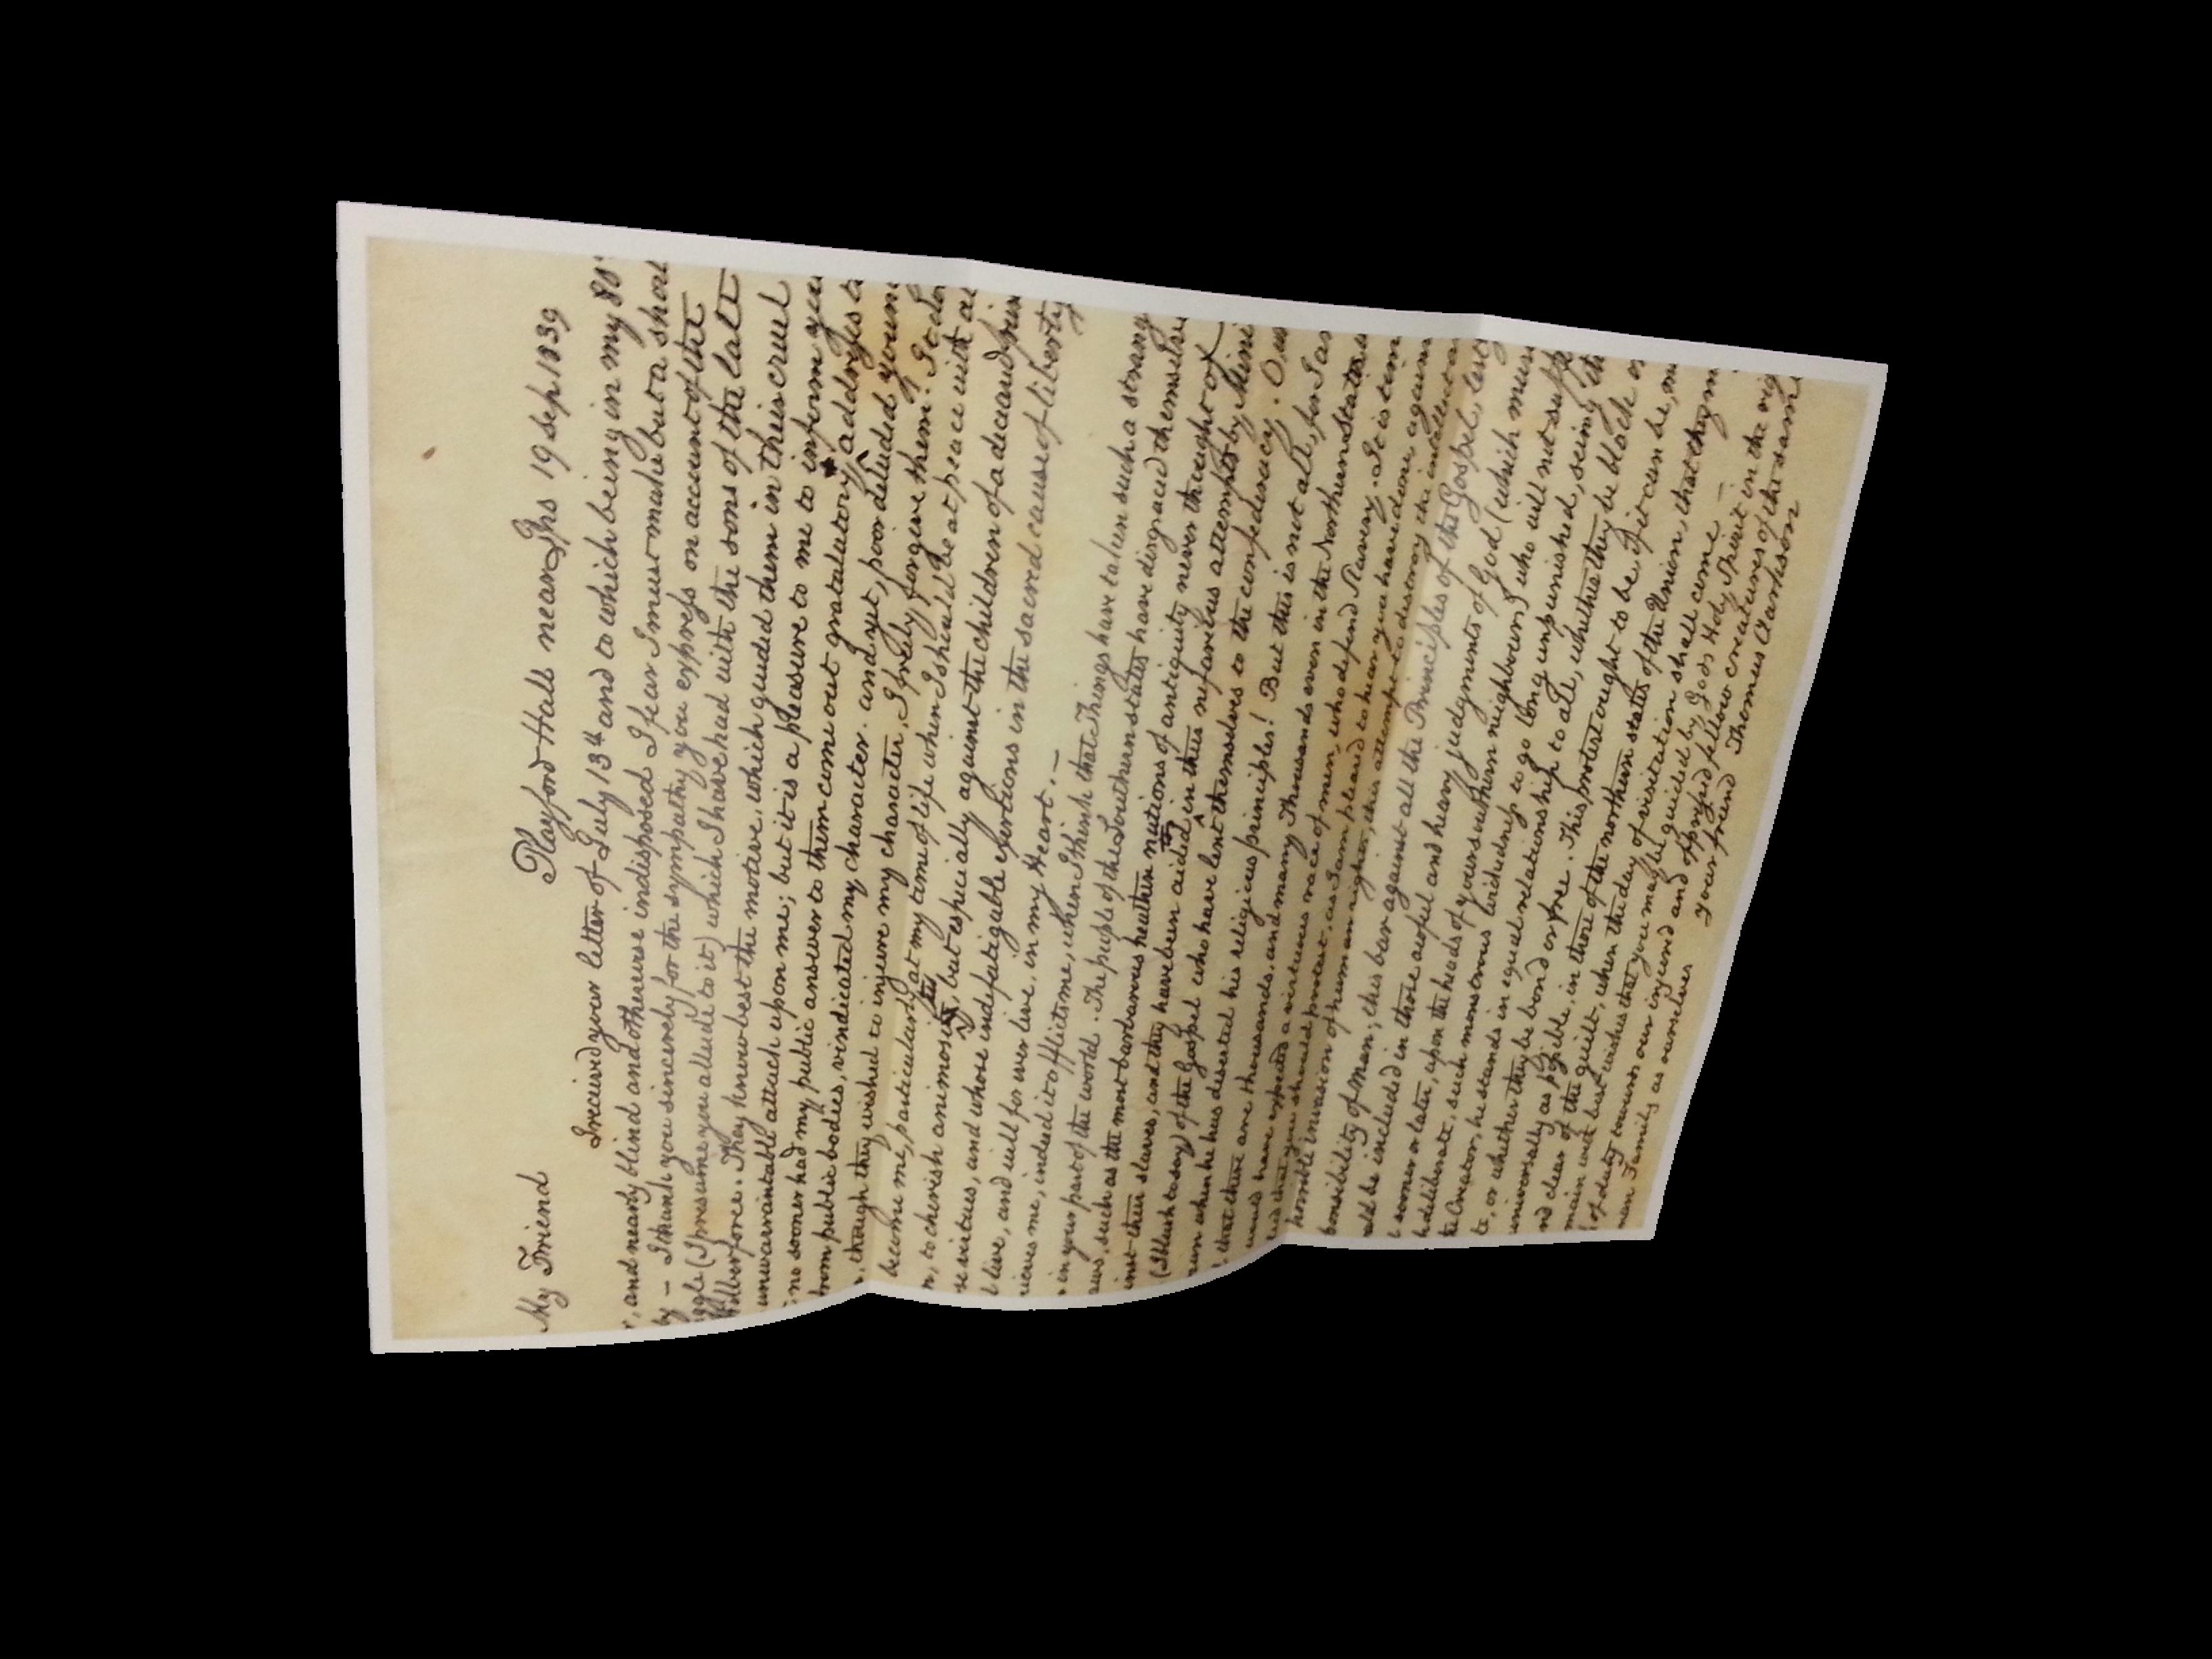 Playford Hall near Ips 19 Sep 1839
My Friend
I recived your letter of July 13th and to which being in my 80
, and nearly blind and otherwise indisposed I fear I must make but a shor
by — I thank you sincerely for the sympathy you express on account of the
ggle (I presume you allude to it) which I have had with the sons of the late
Wilberforce. They know best the motive, which guided them in this cruel
unwarrantable attack upon me; but it is a pleasure to me to inform you
; no sooner had my public answer to them come out gratulatory addresses to
from public bodies, vindicated my character. and yet, poor deluded youn
, though they wished to injure my character, I freely forgive them. It do
become me, particularly at my time of life when I should be at peace with al
n, to cherish animosity, but especially against the children of a deceased frien
se virtues, and whose indefatigable exertions in the sacred cause of liberty
l live, and will for ever live, in my Heart. —
rieves me, indeed it afflicts me, when I think that Things have taken such a strang
in your part of the world. The people of the Southern states have disgraced themselve
aws, such as the most barbarous heathen nations of antiquity never thought of
inst their slaves, and they have been aided in this nefarious attempt by Mini
(I blush to say) of the Gospel who have lent themselves to the confederacy. O us
run when he has deserted his religious principles! But this is not all, for I am
that there are thousands, and many Thousands even in the Northern States
would have expected a virtuous race of men, who defend Slavery. It is tim
that you should protest, as I am pleased to hear you have done, again
horrible invasion of human rights, this attempt to destroy the intellect a
ponsibility of man; this bar against all the Principles of the Gospel, lest
uld be included in those awful and heavy judgments of God (which mus
l sooner or later, upon the heads of your southern neighbours) who will not suffe
h deliberate, such monstrous wickedness to go long unpunished, seing th
te Creator, he stands in equal relationship to all, whether they be black o
te, or whether they be bond or free. This protest ought to be, if it can be, m
universally as possible, in those of the northern states of the Union, that they m
nd clear of the guilt, when the day of visitation shall come —
main with best wishes that you may be guided by Gods Holy Spirit in the rig
of duty towards our injured and oppressed fellow creatures of the same
man Family as ourselves
your friend Thomas Clarkson